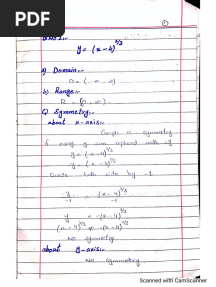 PDF
①
Q No 1:-
y = (x - 4)^2/3
a) Domain:-
D = (-∞, ∞)
b) Range:-
R = [0, ∞)
c) Symmetry:-
about x-axis:-
Graph is symmetry
if using y are replaced with -y
y = (x - 4)^2/3
-y = (x - 4)^2/3
Divide both side by -1
-y/-1 = (x - 4)^2/3/-1
y = -(x - 4)^2/3
(x - 4)^2/3 ≠ -(x - 4)^2/3
No symmetry
about y-axis:-
No symmetry
Scanned with CamScanner